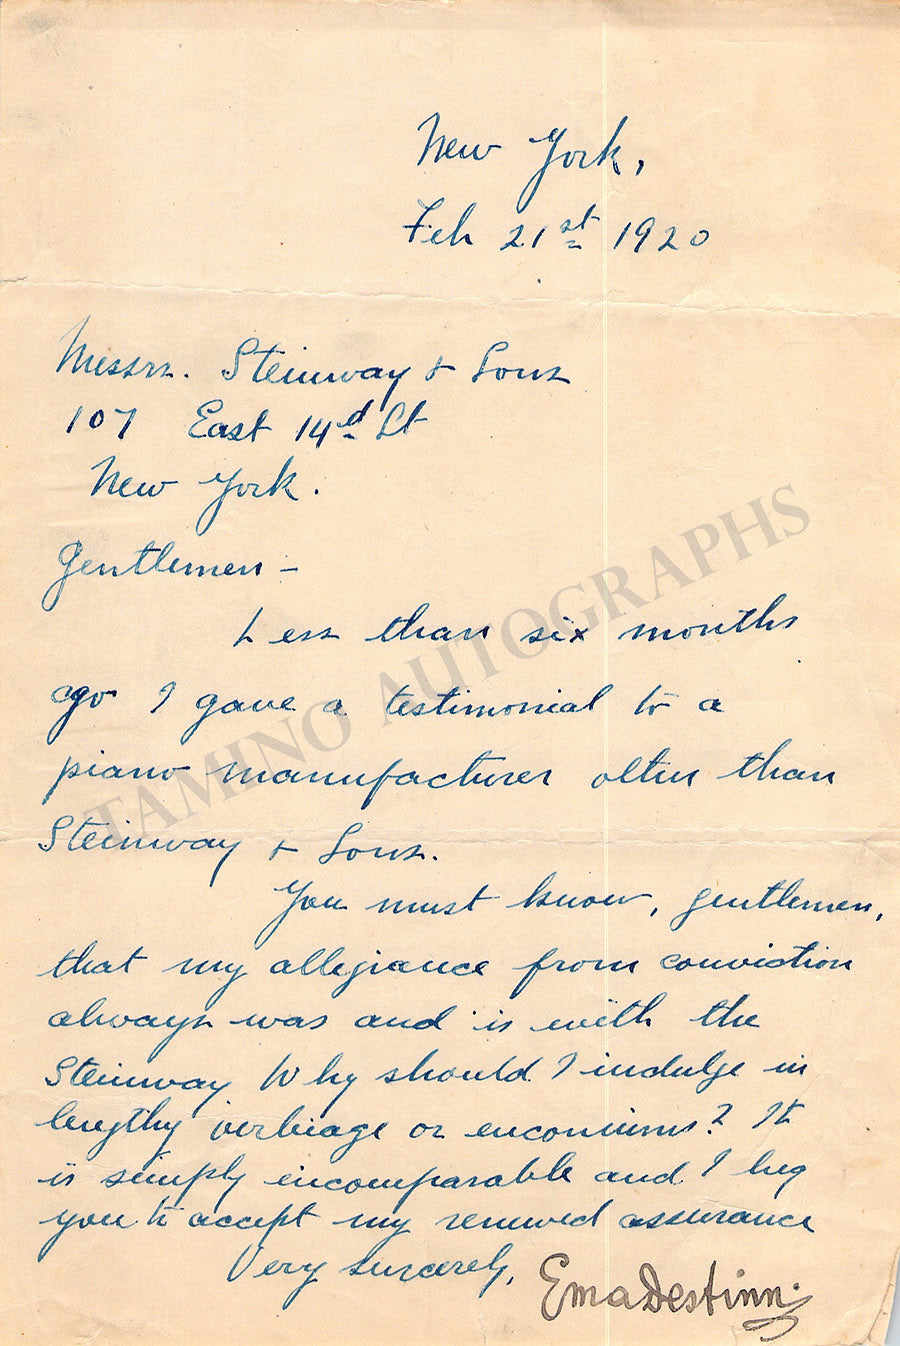 New York,
Feb 21st 1920
Messrs. Steinway & Sons
107 East 14d St
New York.
Gentlemen –
Less than six months
ago I gave a testimonial to a
piano manufacturer other than
Steinway & Sons.
You must know, gentlemen,
that my allegiance from conviction
always was and is with the
Steinway Why should I indulge in
lengthy verbiage or encomiums? It
is simply incomparable and I beg
you to accept my renewed assurance
Very sincerely,
Ema Destinn.
TAMINO AUTOGRAPHS